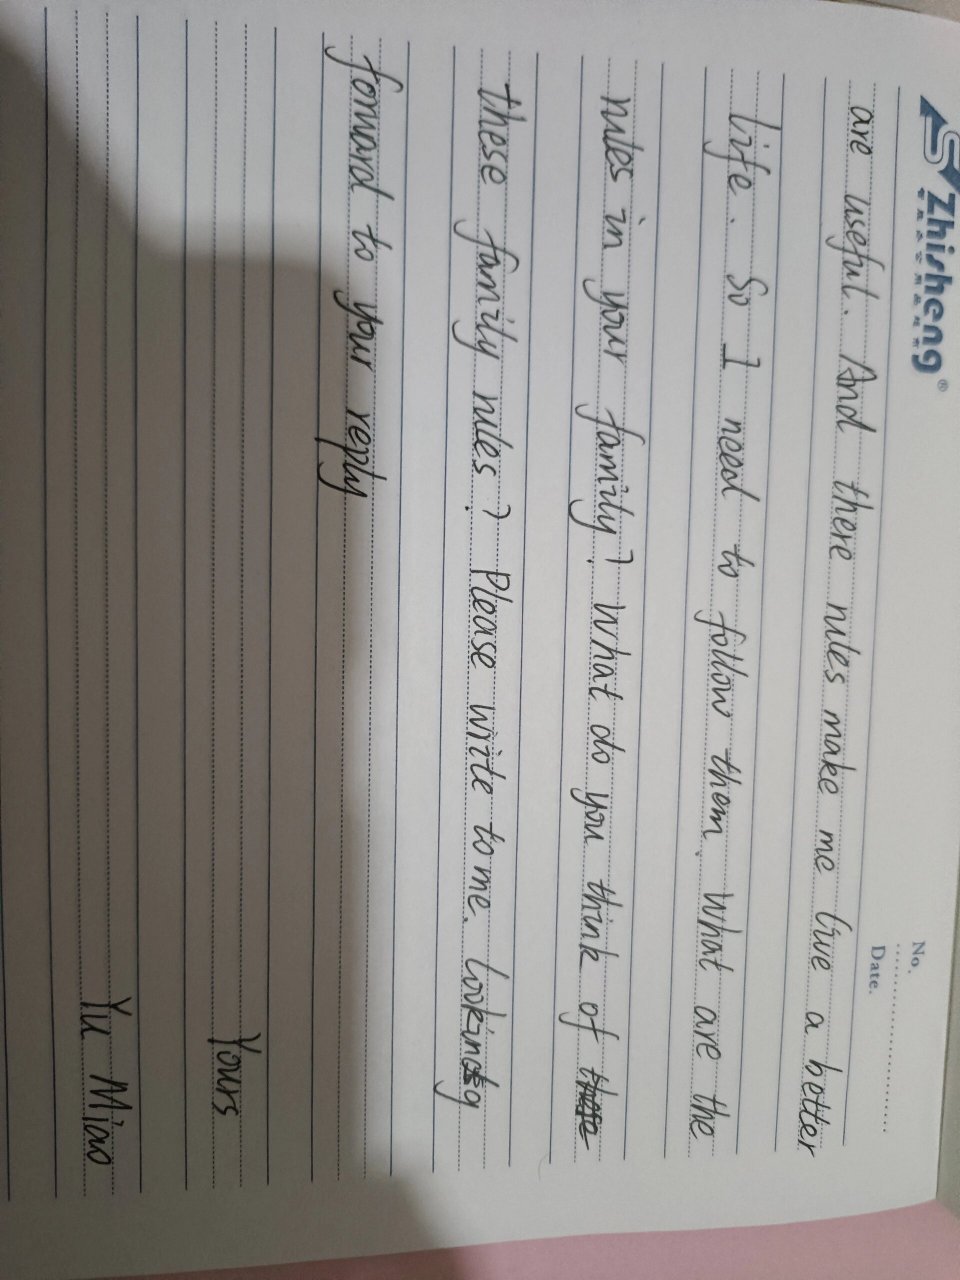 Zhisheng®
No.
Date.
are useful. And there rules make me live a better
life. So I need to follow them. What are the
rules in your family? What do you think of
these family rules? Please write to me. Looking
forward to your reply
Yours
Yu Miao